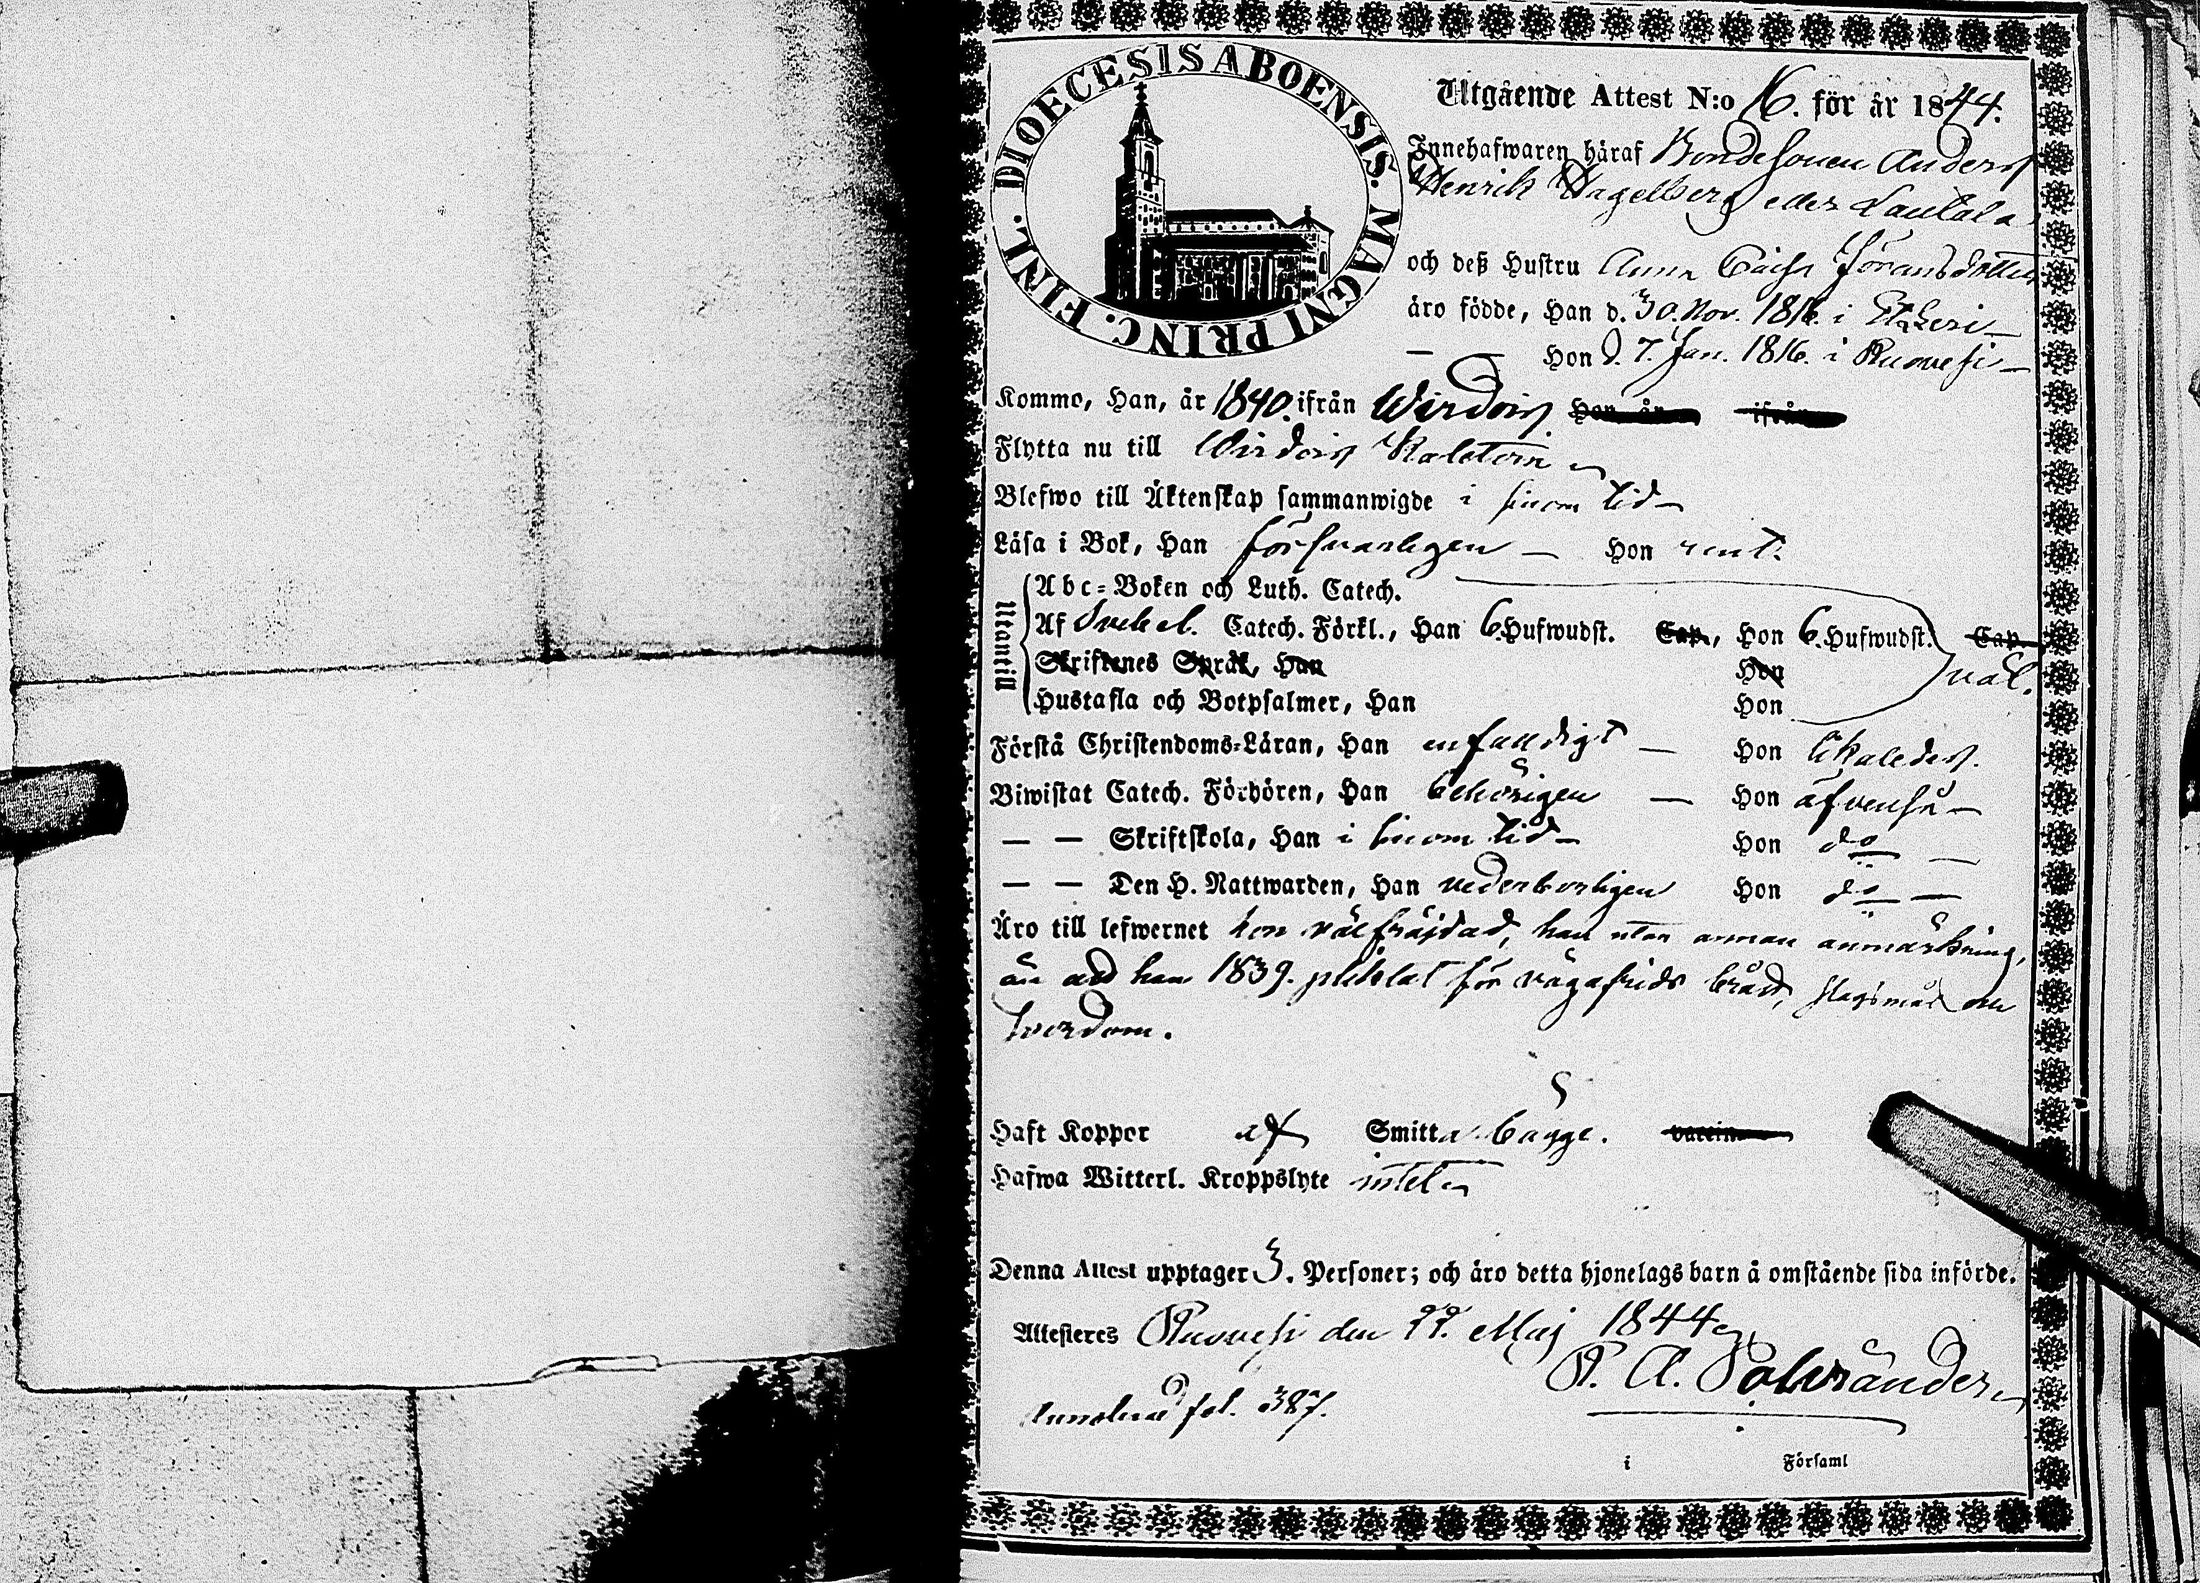 DIOECESIS ABOENSIS. MAGNI PRINC. FINL.
Utgående Attest N:o 16. för år 1844.
Innehafwaren häraf Bondesonen Anders
Henrik Hagelberg eller Lautala
och deß Hustru Anna Caisa Göransdotter
äro födde, Han d. 30. Nov. 1816. i Etseri
— Hon d. 7. Jan. 1816. i Ruovesi
Komme, Han, år 1840. ifrån Wirdois Hon år ifrån
Flytta nu till Wirdois
Blefwo till Äktenskap sammanwigde i sinom tid
Läsa i Bok, Han försvarligen — Hon rent.
Utantill
Abc-Boken och Luth. Catech.
Af Svebel. Catech. Förkl., Han 6. Hufwudst. Cap., Hon 6. Hufwudst. Cap.
Skriftenes Språk, Han Hon
väl.
Hustafla och Botpsalmer, Han Hon
Förstå Christendoms-Läran, Han enfaldigt — Hon likaledes.
Biwistat Catech. Förhören, Han behörigen — Hon äfvenså —
— — Skriftskola, Han i sinom tid — Hon do —
— — Den H. Nattwarden, Han vederborligen Hon do —
Äro till lefwernet hon välfräjdad, han utan annan anmärkning,
än att han 1839. pliktat för vägafrids brått, slagsmål och
sverdom.
Haft Koppor af Smitta bägge. vaccin
Hafwa Witterl. Kroppslyte intet
Denna Attest upptager 3. Personer; och äro detta hjonelags barn å omstående sida införde.
Attesteras Ruovesi den 22. Maj 1844
P. A.
fol. 387.
i Församl